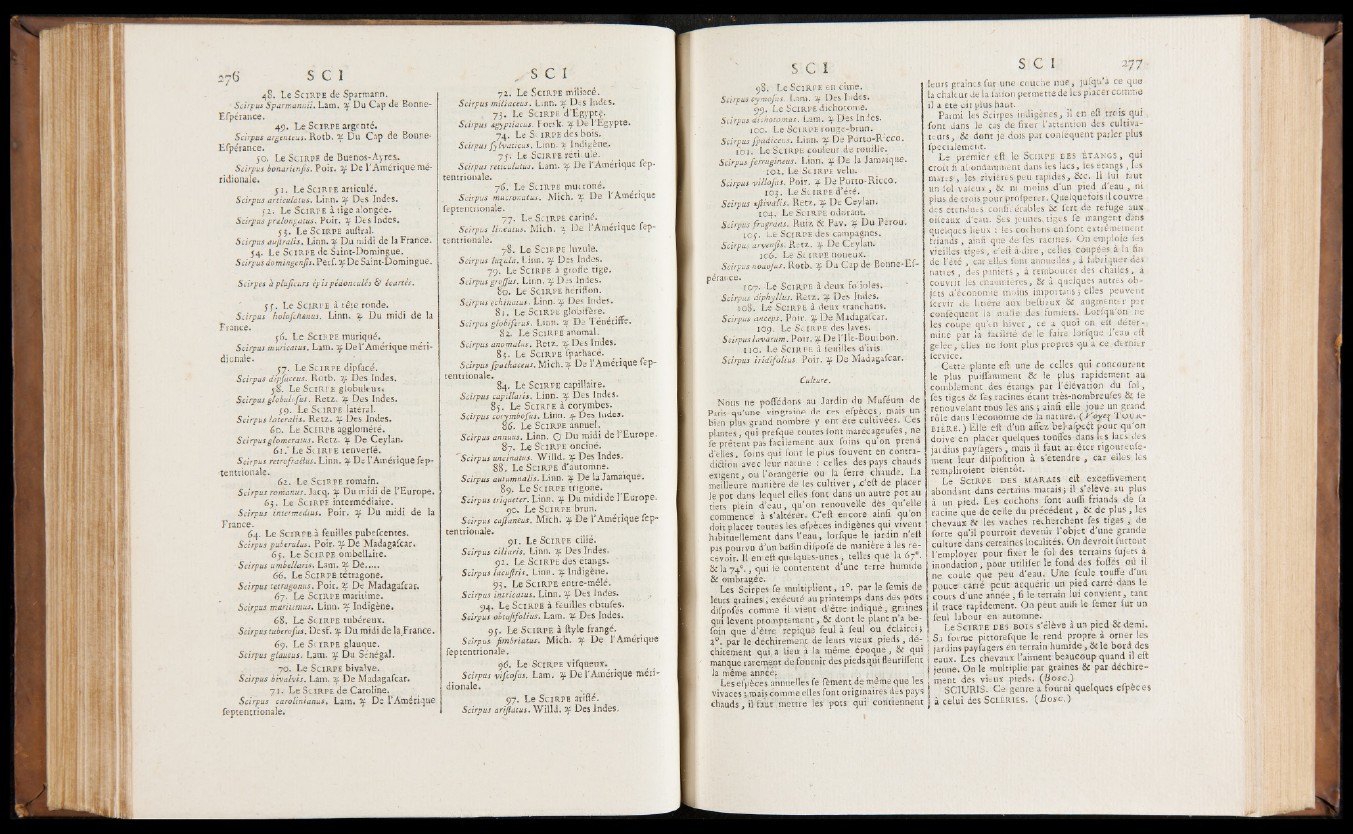 276 SCI
48. Le Scirpe de Sparmann.
Scirpus Sparmannii. Lam. ♃ Du Cap de Bonne-
Eſpérance.
49. Le Scirpe argenté.
Scirpus argenteus. Rotb. ♃ Du Cap de Bonne-
Eſpérance.
50. Le Scirpe de Buenos-Ayres.
Scirpus bonariensis. Poir. ♃ De l'Amérique mé-
ridionale.
51. Le Scirpe articulé.
Scirpus articulatus. Linn. ♃ Des Indes.
52. Le Scirpe à tige alongée.
Scirpus prelongatus. Poir. ♃ Des Indes.
53. Le Scirpe auſtral.
Scirpus auſtralis. Linn. ♃ Du midi de la France.
54. Le Scirpe de Saint-Domingue.
Scirpus domingenſis. Perſ. ♃ De Saint-Domingue.
Scirpes à pluſieurs épis pédonculés & écartés.
55. Le Scirpe à tête ronde.
Scirpus holoſchœnus. Linn. ♃ Du midi de la
France.
56. Le Scirpe muriqué.
Scirpus muricatus. Lam. ♃ De l'Amérique méri-
dionale.
57. Le Scirpe dipſacé.
Scirpus dipſaceus. Rotb. ♃ Des Indes.
58. Le Scirpe globuleux.
Scirpus globuloſus. Retz. ♃ Des Indes.
59. Le Scirpe latéral.
Scirpus lateralis. Retz. ♃ Des Indes.
60. Le Scirpe aggloméré.
Scirpus glomeratus. Retz. ♃ De Ceylan.
61. Le Scirpe renverſé.
Scirpus retrofractus. Linn. ♃ De l'Amérique ſep-
tentrionale.
62. Le Scirpe romain.
Scirpus romanus. Jacq. ♃ Du midi de l'Europe.
63. Le Scirpe intermédiaire.
Scirpus intermedius. Poir. ♃ Du midi de la
France.
64. Le Scirpe à feuilles pubeſcentes.
Scirpus puberulus. Poir. ♃ De Madagaſcar.
65. Le Scirpe ombellaire.
Scirpus umbellaris. Lam. ♃ De.....
66. Le Scirpe tétragone.
Scirpus tetragonus. Poir. ♃ De Madagaſcar.
67. Le Scirpe maritime.
Scirpus maritimus. Linn. ♃ Indigène.
68. Le Scirpe tubéreux.
Scirpus tuberoſus. Desf. ♃ Du midi de la France.
69. Le Scirpe glauque.
Scirpus glaucus. Lam. ♃ Du Sénégal.
70. Le Scirpe bivalve.
Scirpus bivalvis. Lam. ♃ De Madagaſcar.
71. Le Scirpe de Caroline.
Scirpus carolinianus. Lam. ♃ De l'Amérique
ſeptentrionale.
SCI
72. Le Scirpe miliacé.
Scirpus miliaceus. Linn. ♃ Des Indes.
73. Le Scirpe d'Egypte.
Scirpus ægyptiacus. Forsk. ♃ De l'Egypte.
74. Le Scirpe des bois.
Scirpus ſylvaticus. Linn. ♃ Indigène.
75. Le Scirpe réticulé.
Scirpus reticulatus. Lam. ♃ De l'Amérique ſep-
tentrionale.
76. Le Scirpe mucroné.
Scirpus mucronatus. Mich. ♃ De l'Amérique
ſeptentrionale.
77. Le Scirpe cariné.
Scirpus lineatus. Mich. ♃ De l'Amérique ſep-
tentrionale.
78. Le Scirpe luzule.
Scirpus luzula. Linn. ♃ Des Indes.
79. Le Scirpe à groſſe tige.
Scirpus groſſus. Linn. ♃ Des Indes.
80. Le Scirpe hériſſon.
Scirpus echinatus. Linn. ♃ Des Indes.
81. Le Scirpe globifère.
Scirpus globiferus. Linn. ♃ De Ténériffe.
82. Le Scirpe anomal.
Scirpus anomalus. Retz. ♃ Des Indes.
83. Le Scirpe ſpathacé.
Scirpus ſpathaceus. Mich. ♃ De l'Amérique ſep-
tentrionale.
84. Le Scirpe capillaire.
Scirpus capillaris. Linn. ♃ Des Indes.
85. Le Scirpe à corymbes.
Scirpus corymboſus. Linn. ♃ Des Indes.
86. Le Scirpe annuel.
Scirpus annuus. Linn. ☉ Du midi de l'Europe.
87. Le Scirpe onciné.
Scirpus uncinatus. Willd. ♃ Des Indes.
88. Le Scirpe d'automne.
Scirpus autumnalis. Linn. ♃ De la Jamaïque.
89. Le Scirpe trigone.
Scirpus triqueter. Linn. ♃ Du midi de l'Europe.
90. Le Scirpe brun.
Scirpus caſtaneus. Mich. ♃ De l'Amérique ſep-
tentrionale.
91. Le Scirpe cilié.
Scirpus ciliaris. Linn. ♃ Des Indes.
92. Le Scirpe des étangs.
Scirpus lacuſtris. Linn. ♃ Indigène.
93. Le Scirpe entre-mêlé.
Scirpus intricatus. Linn. ♃ Des Indes.
94. Le Scirpe à feuilles obtuſes.
Scirpus obtuſifolius. Lam. ♃ Des Indes.
95. Le Scirpe à ſtyle frangé.
Scirpus fimbriatus. Mich. ♃ De l'Amérique
ſeptentrionale.
96. Le Scirpe viſqueux.
Scirpus viſcoſus. Lam. ♃ De l'Amérique méri-
dionale.
97. Le Scirpe ariſté.
Scirpus ariſtatus. Willd. ♃ Des Indes.
SCI
98. Le Scirpe en cime.
Scirpus cymoſus. Lam. ♃ Des Indes.
99. Le Scirpe dichotome.
Scirpus dichotomus. Lam. ♃ Des Indes.
100. Le Scirpe rouge-brun.
Scirpus ſpadiceus. Linn. ♃ De Porto-Ricco.
101. Le Scirpe couleur de rouille.
Scirpus ferrugineus. Linn. ♃ De la Jamaïque.
102. Le Scirpe velu.
Scirpus villoſus. Poir. ♃ De Porto-Ricco.
103. Le Scirpe d'été.
Scirpus æſtivalis. Retz. ♃ De Ceylan.
104. Le Scirpe odorant.
Scirpus fragrans. Ruiz & Pav. ♃ Du Pérou.
105. Le Scirpe des campagnes.
Scirpus arvenſis. Retz. ♃ De Ceylan.
106. Le Scirpe noueux.
Scirpus nodoſus. Rotb. ♃ Du Cap de Bonne-Eſ-
pérance.
107. Le Scirpe à deux folioles.
Scirpus diphyllus. Retz. ♃ Des Indes.
108. Le Scirpe à deux tranchans.
Scirpus anceps. Poir. ♃ De Madagaſcar.
109. Le Scirpe des laves.
Scirpus lavarum. Poir. ♃ De l'Ile-Bourbon.
110. Le Scirpe à feuilles d'iris.
Scirpus iridifolius. Poir. ♃ De Madagaſcar.
Culture.
Nous ne poſſédons au Jardin du Muſéum de
Paris qu'une vingtaine de ces eſpèces, mais un
bien plus grand nombre y ont été cultivées. Ces
plantes, qui preſque toutes ſont marécageuſes, ne
ſe prêtent pas facilement aux ſoins qu'on prend
d'elles, ſoins qui ſont le plus ſouvent en contra-
diction avec leur nature : celles des pays chauds
exigent, ou l'orangerie ou la ſerre chaude. La
meilleure manière de les cultiver, c'eſt de placer
le pot dans lequel elles ſont dans un autre pot au
tiers plein d'eau, qu'on renouvelle dès qu'elle
commence à s'altérer. C'eſt encore ainſi qu'on
doit placer toutes les eſpèces indigènes qui vivent
habituellement dans l'eau, lorſque le jardin n'eſt
pas pourvu d'un baſſin diſpoſé de manière à les re-
cevoir. Il en eſt quelques-unes, telles que la 67e.
& la 74e., qui ſe contentent d'une terre humide
& ombragée.
Les Scirpes ſe multiplient, 1°. par le ſemis de
leurs graines, exécuté au printemps dans des pots
diſpoſés comme il vient d'être indiqué, graines
qui lèvent promptement, & dont le plant n'a be-
ſoin que d'être repiqué ſeul à ſeul ou éclairci;
2°. par le déchirement de leurs vieux pieds, dé-
chirement qui a lieu à la même époque, & qui
manque rarement de fournir des pieds qui fleuriſſent
la même année.
Les eſpèces annuelles ſe ſèment de même que les
vivaces; mais comme elles ſont originaires des pays
chauds, il faut mettre les pots qui contiennent
SCI 277
leurs graines ſur une couche nue, juſqu'à ce que
la chaleur de la ſaiſon permette de les placer comme
il a été dit plus haut.
Parmi les Scirpes indigènes, il en eſt trois qui
ſont dans le cas de fixer l'attention des cultiva-
teurs, & dont je dois par conſéquent parler plus
ſpécialement.
Le premier eſt le Scirpe des étangs, qui
croît ſi abondamment dans les lacs, les étangs, les
mares, les rivières peu rapides, &c. Il lui faut
un ſol vaſeux, & ni moins d'un pied d'eau, ni
plus de trois pour proſpérer. Quelquefois il couvre
des étendues conſidérables & ſert de refuge aux
oiſeaux d'eau. Ses jeunes tiges ſe mangent dans
quelques lieux : les cochons en ſont extrêmement
friands, ainſi que de ſes racines. On emploie ſes
vieilles tiges, c'eſt-à-dire, celles coupées à la fin
de l'été, car elles ſont annuelles, à fabriquer des
nattes, des paniers, à rembourer des chaiſes, à
couvrir les chaumières, & à quelques autres ob-
jets d'économie moins importans; elles peuvent
ſervir de litière aux beſtiaux & augmenter par
conſéquent la maſſe des fumiers. Lorſqu'on ne
les coupe qu'en hiver, ce à quoi on eſt déter-
miné par la facilité de le faire lorſque l'eau eſt
gelée, elles ne ſont plus propres qu'à ce dernier
ſervice.
Cette plante eſt une de celles qui concourent
le plus puiſſamment & le plus rapidement au
comblement des étangs par l'élévation du ſol,
ſes tiges & ſes racines étant très-nombreuſes & ſe
renouvelant tous les ans; ainſi elle joue un grand
rôle dans l'économie de la nature. (Voyez Tour-
bière.) Elle eſt d'un aſſez bel aſpect pour qu'on
doive en placer quelques touffes dans les lacs des
jardins payſagers, mais il faut arrêter rigoureuſe-
ment leur diſpoſition à s'étendre, car elles les
rempliroient bientôt.
Le Scirpe des marais eſt exceſſivement
abondant dans certains marais; il s'élève au plus
à un pied. Les cochons ſont auſſi friands de ſa
racine que de celle du précédent, & de plus, les
chevaux & les vaches recherchent ſes tiges, de
ſorte qu'il pourroit devenir l'objet d'une grande
culture dans certaines localités. On devroit ſurtout
l'employer pour fixer le ſol des terrains ſujets à
inondation, pour utiliſer le fond des foſſés où il
ne coule que peu d'eau. Une ſeule touffe d'un
pouce carré peut acquérir un pied carré dans le
cours d'une année, ſi le terrain lui convient, tant
il trace rapidement. On peut auſſi le ſemer ſur un
ſeul labour en automne.
Le Scirpe des bois s'élève à un pied & demi.
Sa forme pittoreſque le rend propre à orner les
jardins payſagers en terrain humide, & le bord des
eaux. Les chevaux l'aiment beaucoup quand il eſt
jeune. On le multiplie par graines & par déchire-
ment des vieux pieds. (Bosc.)
SCIURIS. Ce genre a fourni quelques eſpèces
à celui des Scléries. (Bosc.)